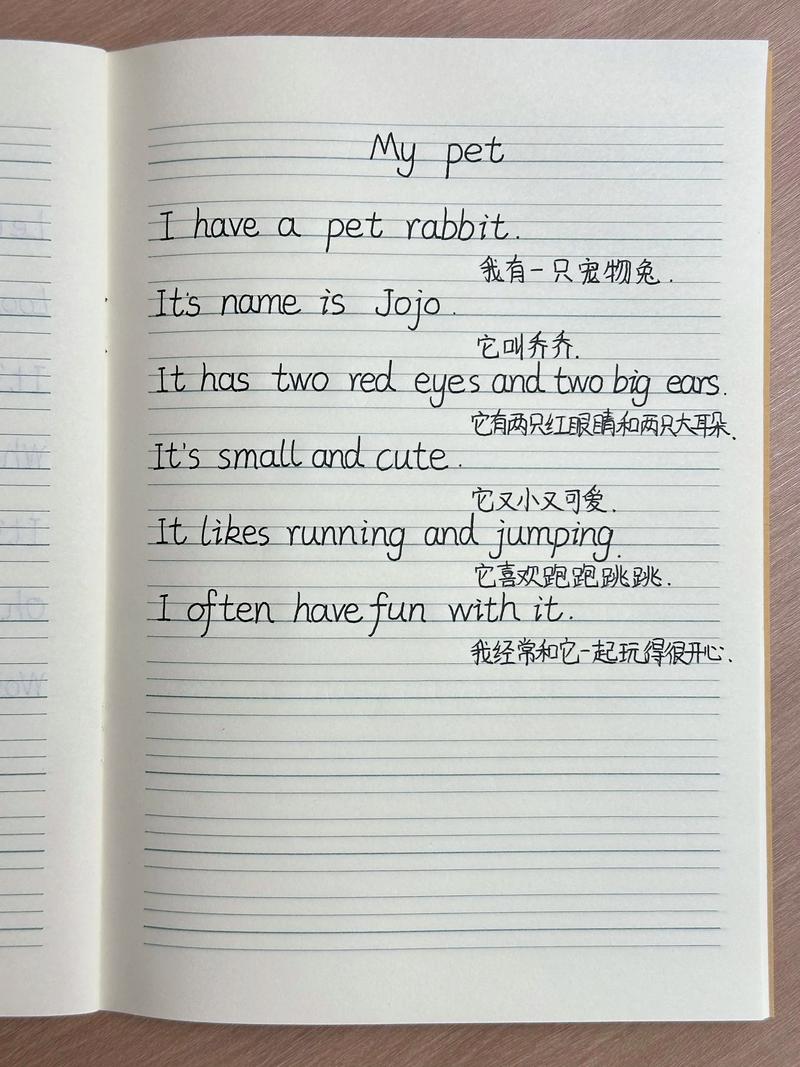 My pet
I have a pet rabbit.
我有一只宠物兔.
It's name is Jojo.
它叫乔乔.
It has two red eyes and two big ears.
它有两只红眼睛和两只大耳朵.
It's small and cute.
它又小又可爱.
It likes running and jumping.
它喜欢跑跑跳跳.
I often have fun with it.
我经常和它一起玩得很开心.